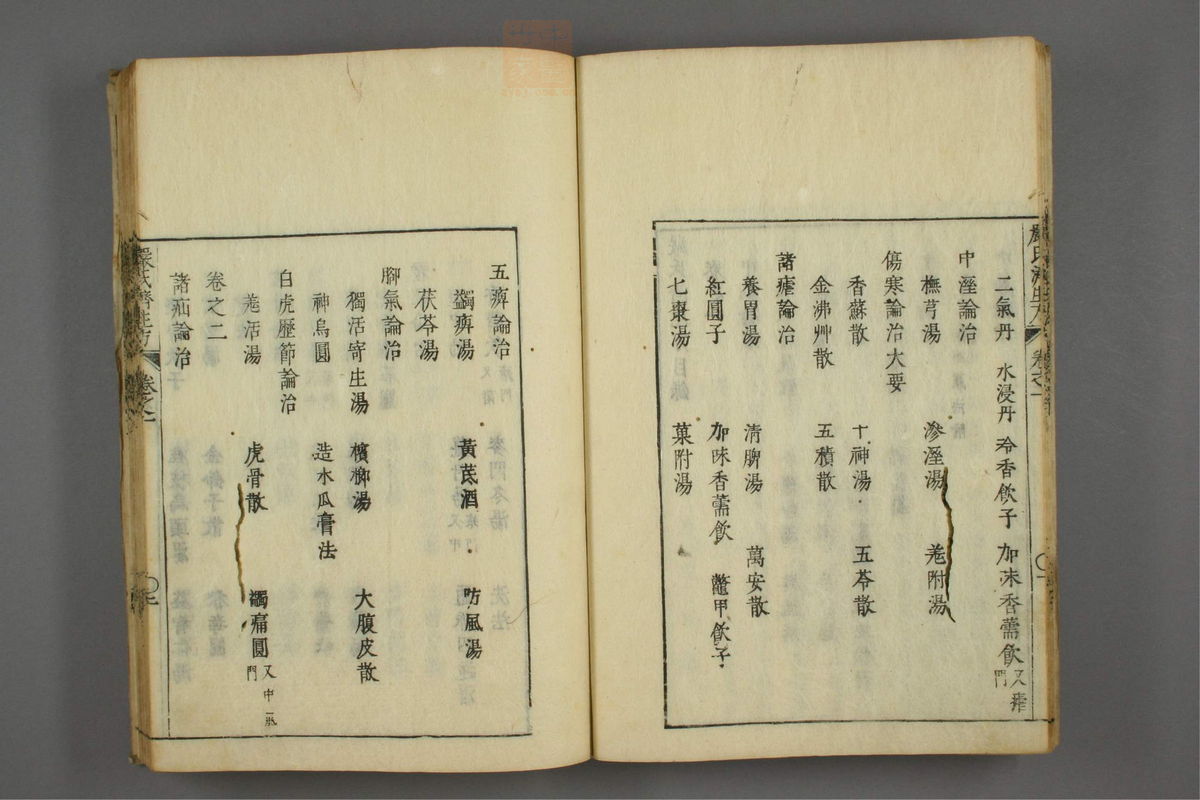 二氣丹 水浸丹 冷香飲子 加味香薷飲 又瘧門
中溼論治
撫芎湯 滲溼湯 羗附湯
傷寒論治大要
香蘇散 十神湯 五苓散
金沸艸散 五積散
諸瘧論治
養胃湯 清脾湯 萬安散
紅圓子 加味香薷飲 鼈甲飲子
七棗湯 菓附湯
五痺論治
蠲痺湯 黃芪酒 防風湯
茯苓湯
腳氣論治
獨活寄生湯 檳榔湯 大腹皮散
神烏圓 造水瓜膏法
白虎歷節論治
羗活湯 虎骨散 蠲痛圓 又中風門
卷之二
諸疝論治
嚴氏濟生方 卷之一